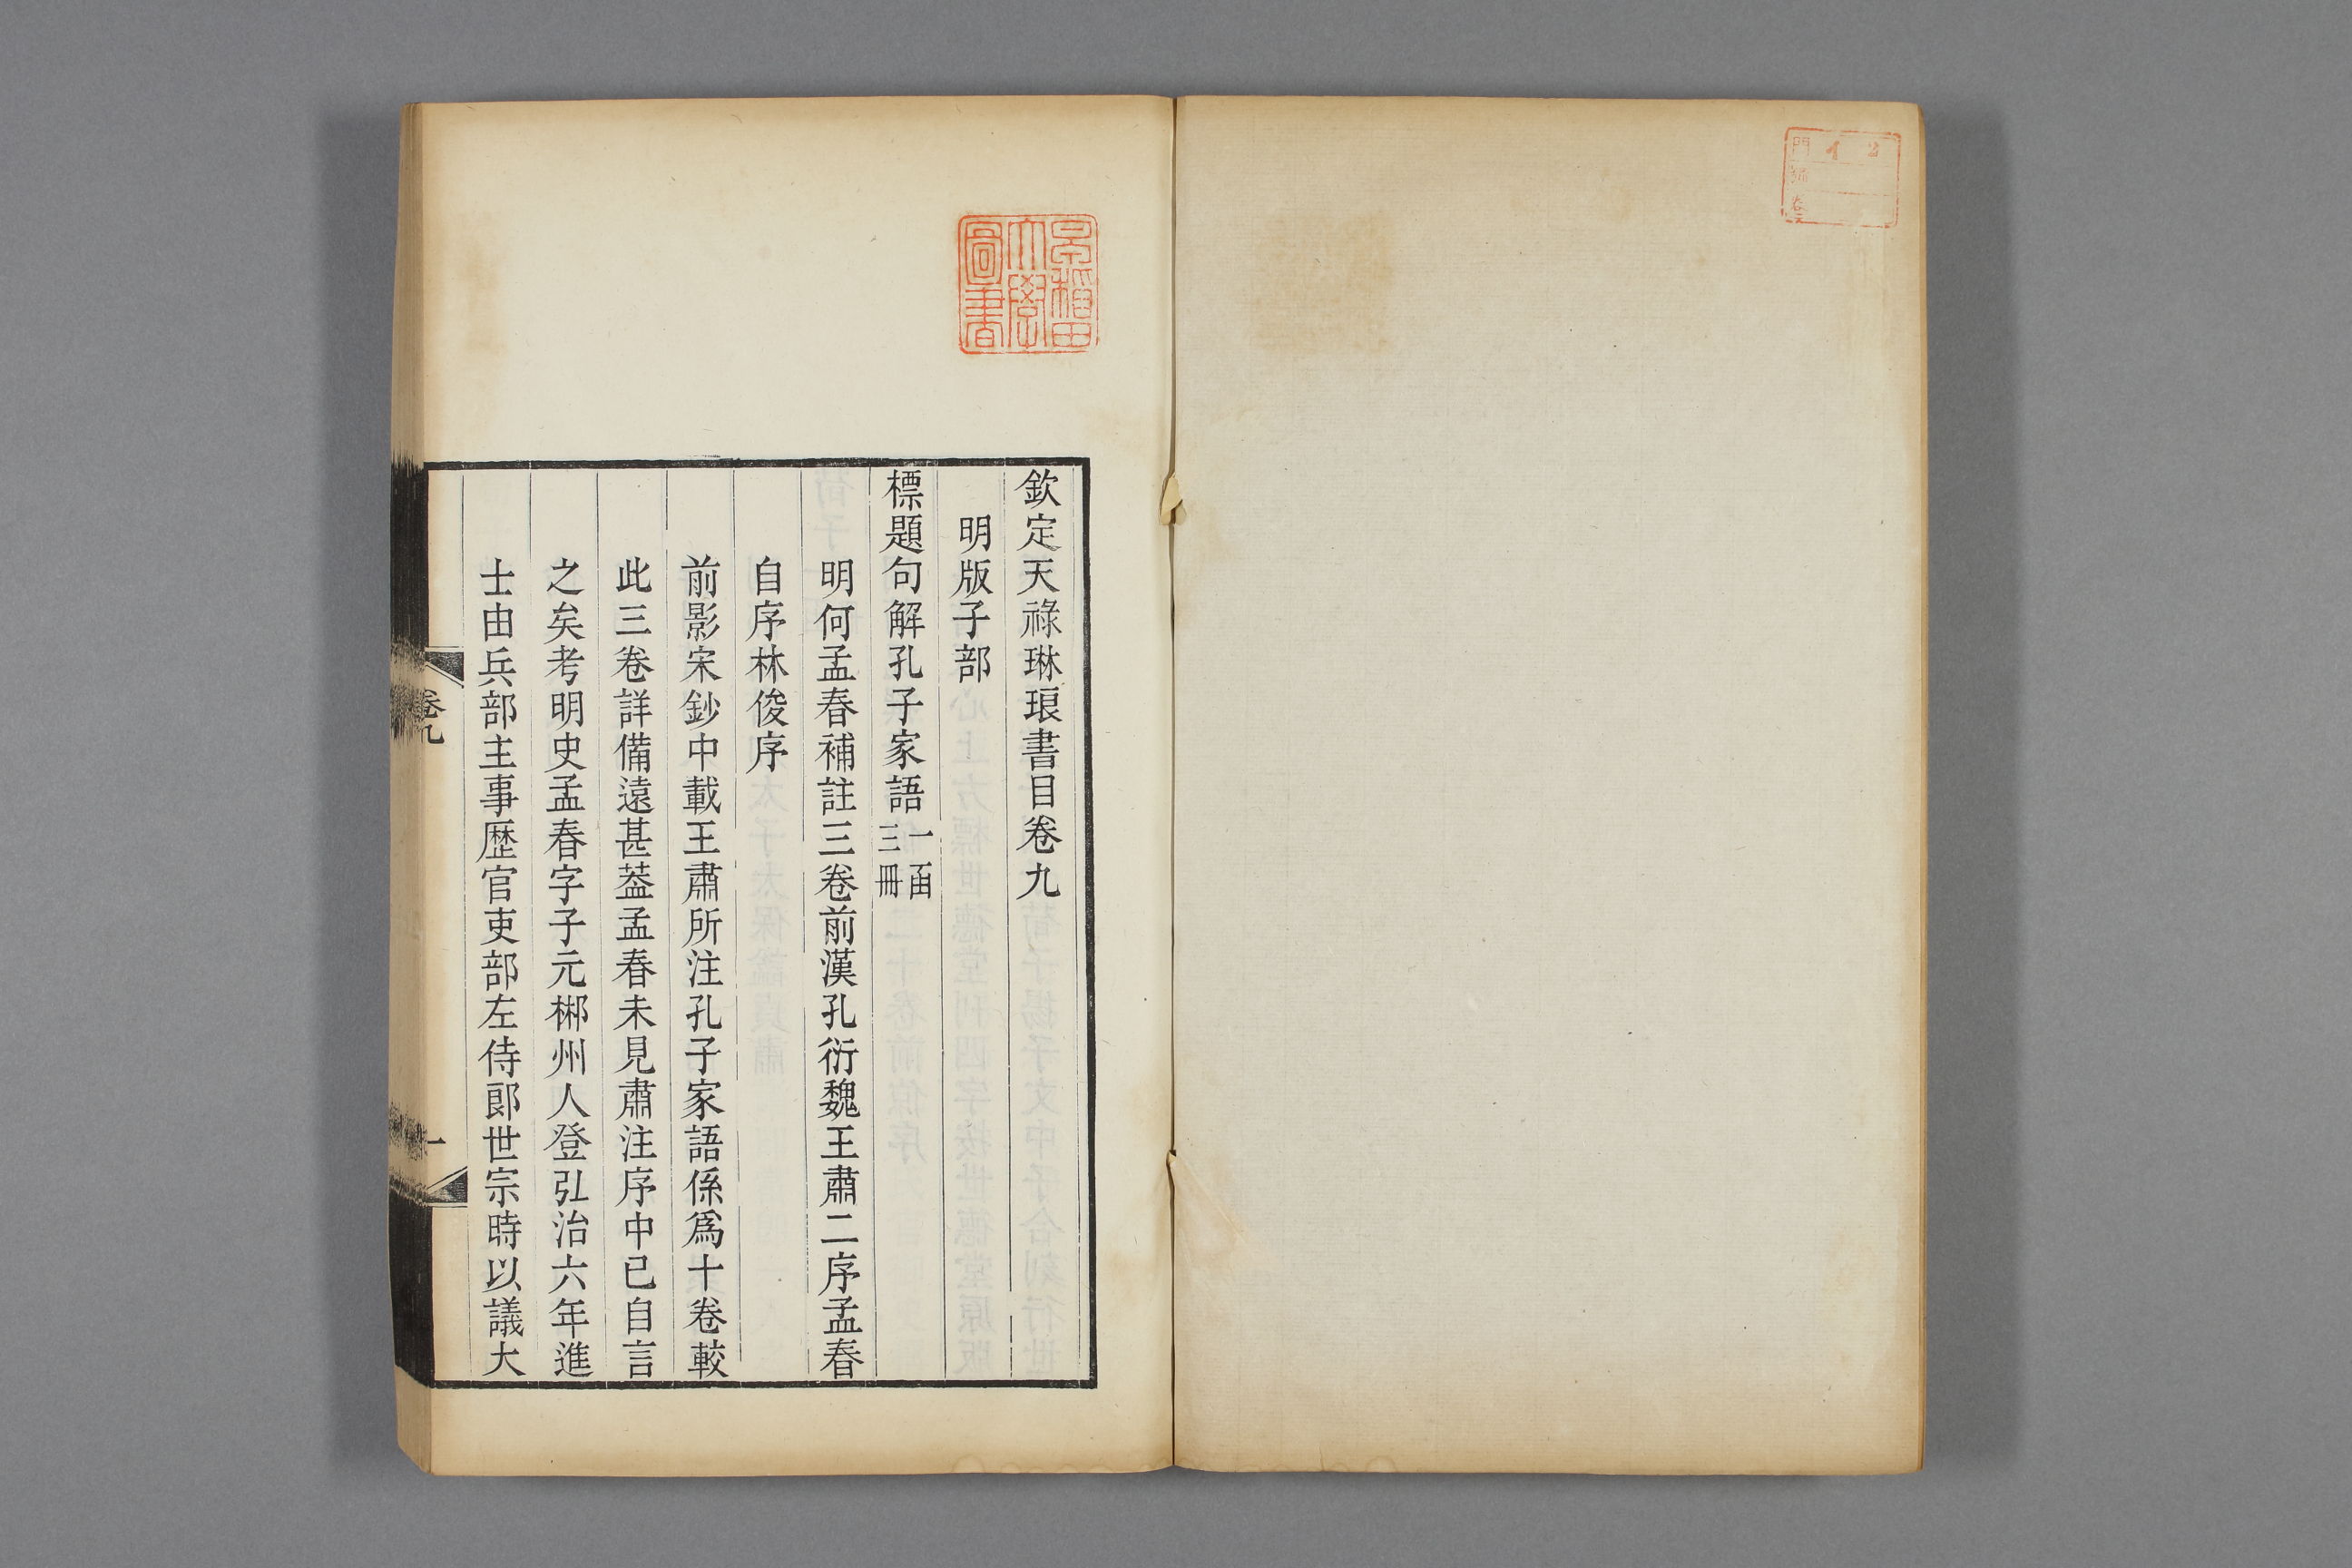 欽定天祿琳琅書目卷九
明版子部
標題句解孔子家語一函三冊
明何孟春補註三卷前漢孔衍魏王肅二序孟春
自序林俊序
前影宋鈔中載王肅所注孔子家語係爲十卷較
此三卷詳備遠甚葢孟春未見肅注序中已自言
之矣考明史孟春字子元郴州人登弘治六年進
士由兵部主事歷官吏部左侍郎世宗時以議大
卷九
一
早稻田
大學
圖書